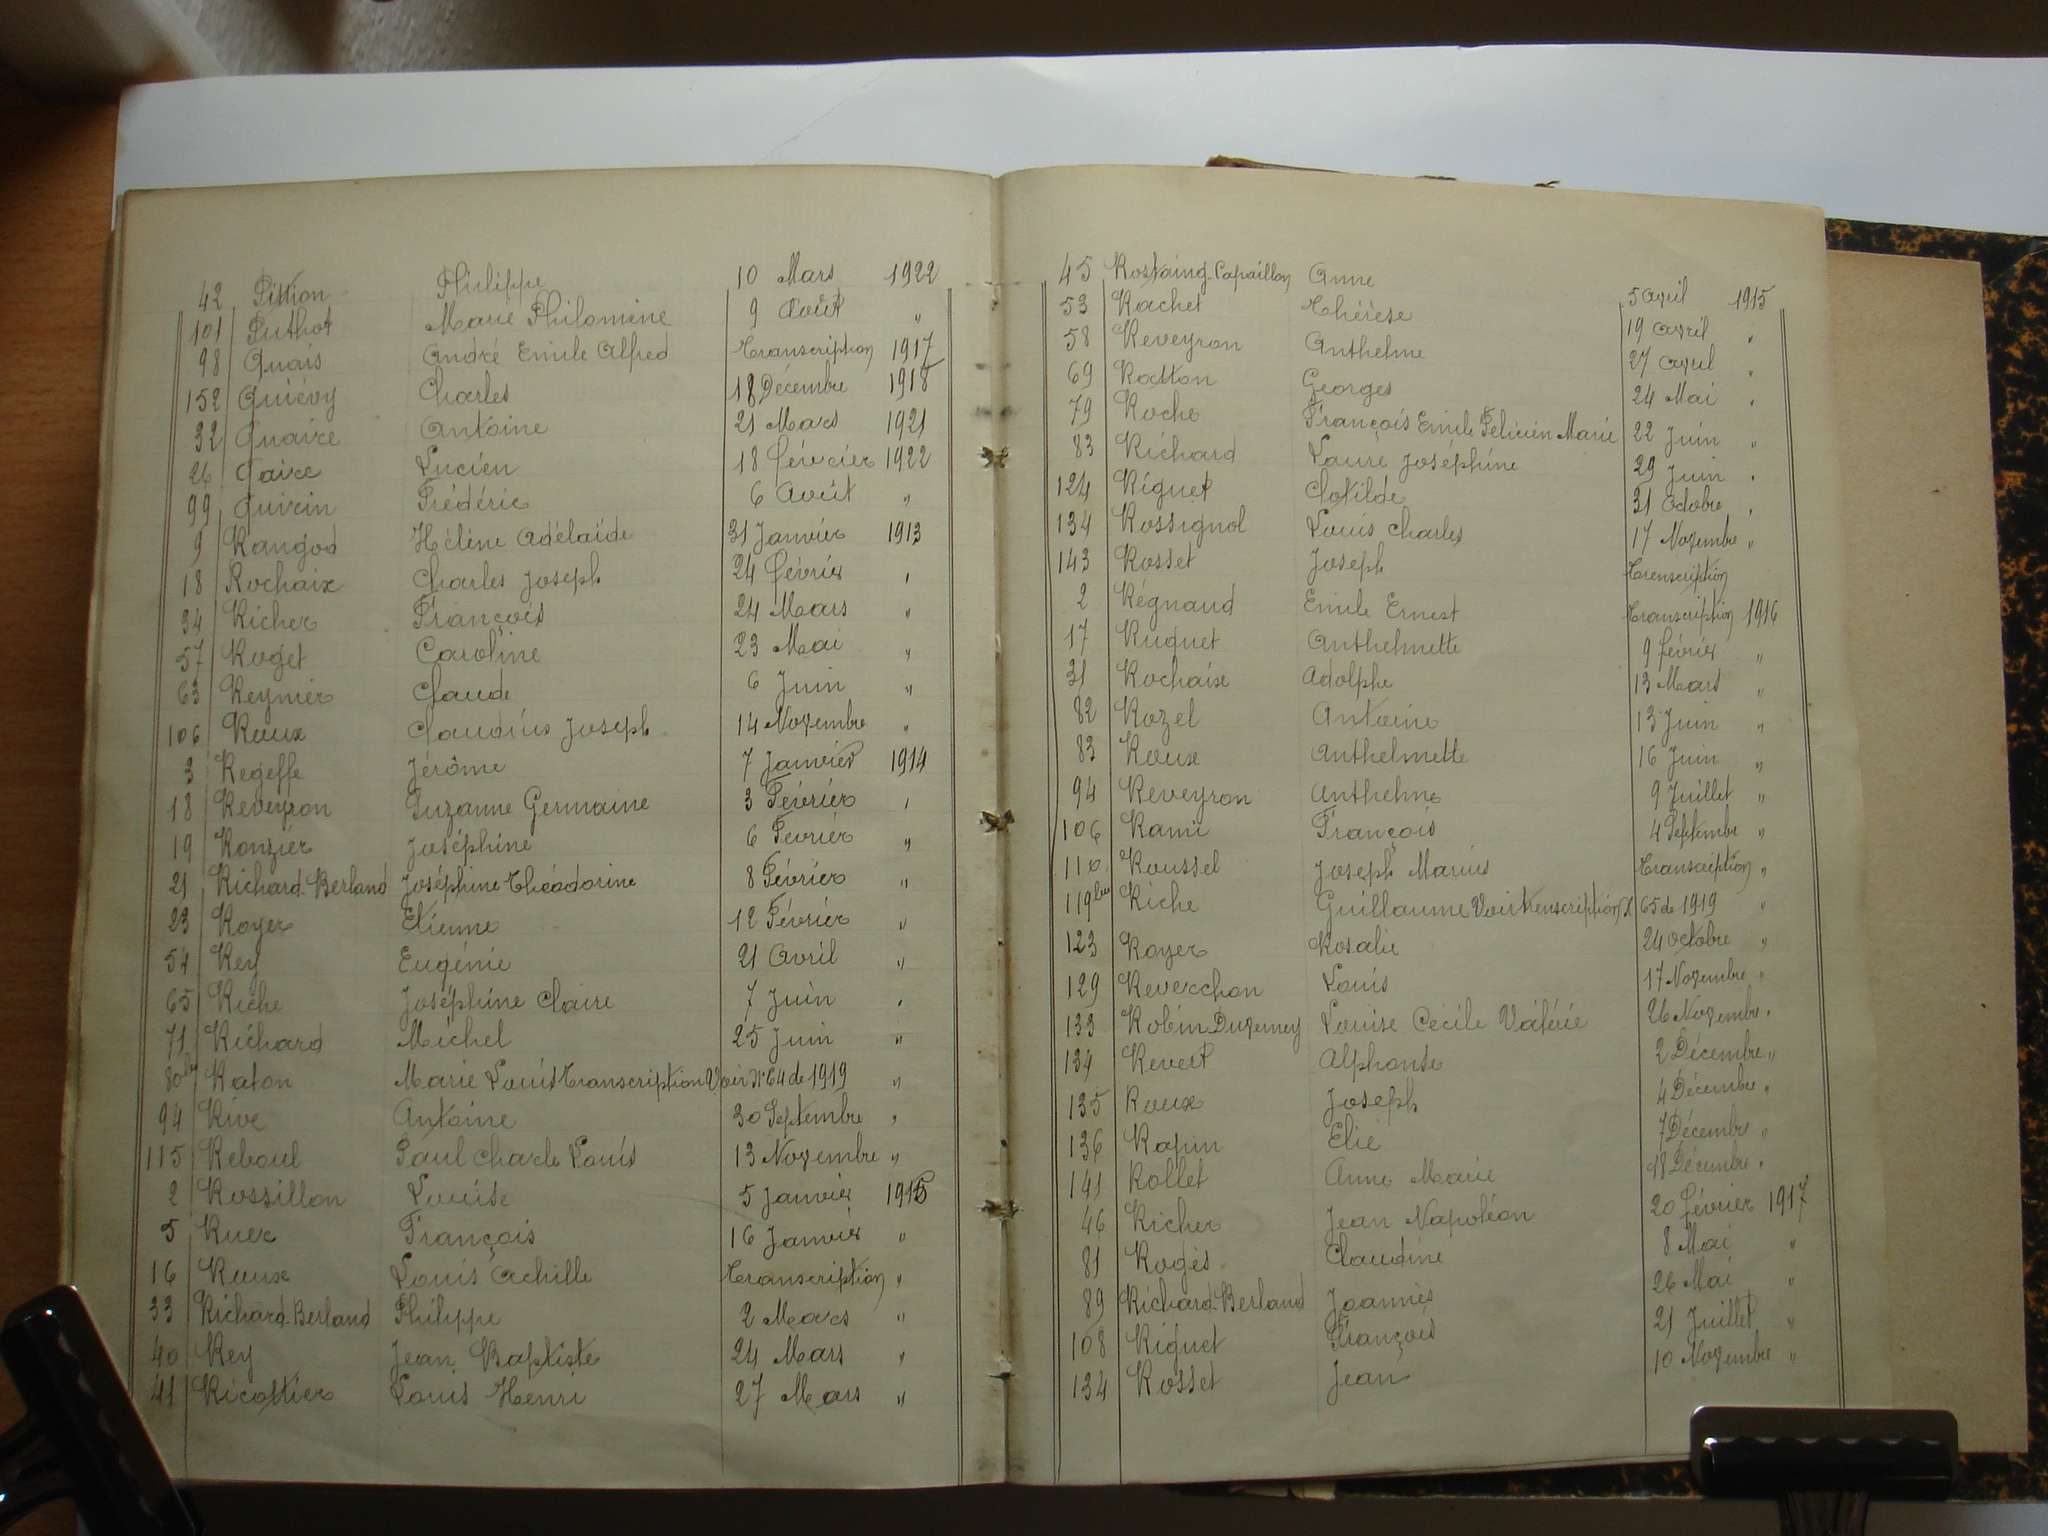 42 Pittion Philippe 10 Mars 1922
101 Puthot Marie Philomène 9 Août "
98 Quais André Emile Alfred Transcription 1917
152 Quiévy Charles 18 Décembre 1918
32 Quaire Antoine 21 Mars 1921
26 Qaire Lucien 18 février 1922
99 Quirin Frédéric 6 Août "
9 Rangod Hélène Adélaïde 31 Janvier 1913
18 Rochaix Charles Joseph 24 février "
34 Richer François 24 Mars "
57 Roget Caroline 23 Mai "
63 Reynier Claude 6 Juin "
106 Roux Claudius Joseph 14 Novembre "
3 Regeffe Jérôme 7 Janvier 1914
18 Reveyron Suzanne Germaine 3 Février "
19 Ronzier Joséphine 6 Février "
21 Richard-Berland Joséphine Théodorine 8 Février "
23 Royer Etienne 12 Février "
54 Rey Eugénie 21 Avril "
65 Riche Joséphine Claire 7 Juin "
71 Richard Michel 25 Juin "
80bis Raton Marie Louis Transcription Voir N° 64 de 1919 "
94 Rive Antoine 30 Septembre "
115 Reboul Paul Charle Louis 13 Novembre "
2 Rossillon Louise 5 Janvier 1915
5 Ruer François 16 Janvier "
16 Roux Louis Achille Transcription "
33 Richard-Berland Philippe 2 Mars "
40 Rey Jean Baptiste 24 Mars "
41 Ricottier Louis Henri 27 Mars "
45 Rostaing-Capaillon Anne 5 avril 1915
53 Rachet Thérèse 19 avril "
58 Reveyron Anthelme 27 avril "
69 Rotton Georges 24 Mai "
79 Roche François Emile Félicien Marie 22 Juin "
83 Richard Laure Joséphine 29 Juin "
124 Riguet Clotilde 31 Octobre "
134 Rossignol Louis Charles 17 Novembre "
143 Rosset Joseph Trenscription
2 Régnaud Emile Ernest Transcription 1916
17 Ruguet Anthelmette 9 février "
31 Rochaix Adolphe 13 Mars "
82 Rozel Antoine 13 Juin "
83 Roux Anthelmette 16 Juin "
94 Reveyron Anthelme 9 Juillet "
106 Rami François 4 Septembre "
110 Roussel Joseph Marius Transcription "
119bis Riche Guillaume Voir trenscription N 65 de 1919 "
123 Royer Rosalie 24 octobre "
129 Reverchon Louis 17 Novembre "
133 Robin-Duzerney Louise Cécile Valérie 26 Novembre "
134 Revert Alphonse 2 Décembre "
135 Roux Joseph 4 Décembre "
136 Rapin Elie 7 Décembre "
141 Rollet Anne Marie 18 Décembre "
46 Richer Jean Napoléon 20 février 1917
81 Rogès Claudine 8 Mai "
89 Richard-Berland Joannès 26 Mai "
108 Riguet François 21 Juillet "
134 Rosset Jean 10 Novembre "